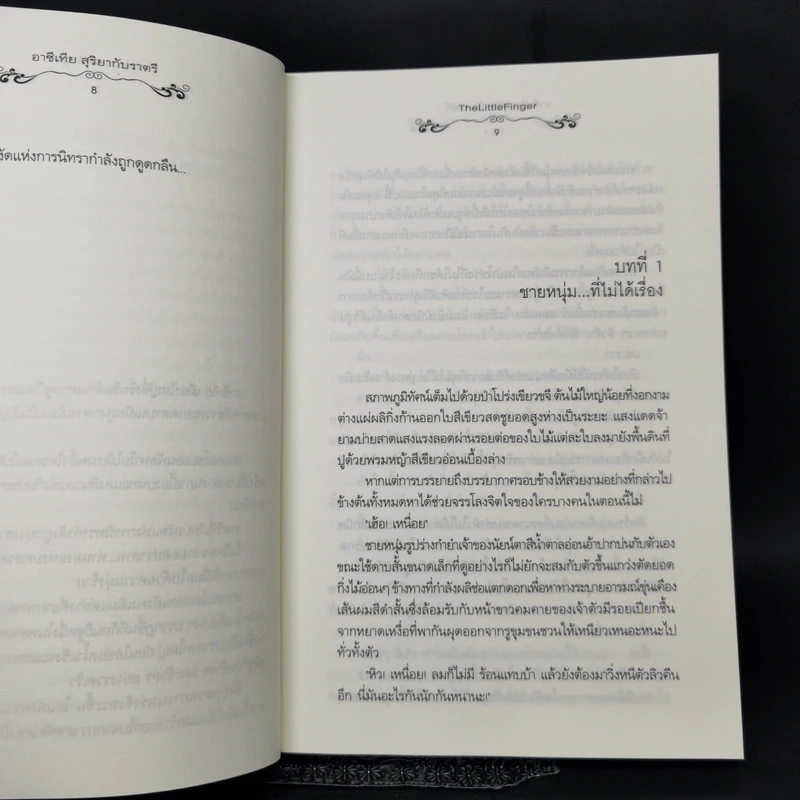 อาซีเทีย สุริยากับราตรี
8
งัดแห่งการนิทรากำลังถูกดูดกลืน...
TheLittleFinger
9
บทที่ 1
ชายหนุ่ม...ที่ไม่ได้เรื่อง
สภาพภูมิทัศน์เต็มไปด้วยป่าโปร่งเขียวขจี ต้นไม้ใหญ่น้อยที่งอกงาม
ต่างแผ่ผลิกิ่งก้านออกใบสีเขียวสดชูยอดสูงห่างเป็นระยะ แสงแดดจ้า
ยามบ่ายสาดแสงแรงลอดผ่านรอยต่อของใบไม้แต่ละใบลงมายังพื้นดินที่
ปูด้วยพรมหญ้าสีเขียวอ่อนเบื้องล่าง
หากแต่การบรรยายถึงบรรยากาศรอบข้างให้สวยงามอย่างที่กล่าวไป
ข้างต้นทั้งหมดหาได้ช่วยจรรโลงจิตใจของใครบางคนในตอนนี้ไม่
"เฮ้อ! เหนื่อย"
ชายหนุ่มรูปร่างกำยำเจ้าของนัยน์ตาสีน้ำตาลอ่อนอ้าปากบ่นกับตัวเอง
ขณะใช้ดาบสั้นขนาดเล็กที่ดูอย่างไรก็ไม่ยักจะสมกับตัวขึ้นแกว่งตัดยอด
กิ่งไม้อ่อนๆ ข้างทางที่กำลังผลิช่อแตกดอกเพื่อหาทางระบายอารมณ์ขุ่นเคือง
เส้นผมสีดำสั้นซึ่งล้อมรับกับหน้าขาวคมคายของเจ้าตัวมีรอยเปียกชื้น
จากหยาดเหงื่อที่พากันผุดออกจากรูขุมขนชวนให้เหนียวเหนอะหนะไป
ทั่วทั้งตัว
"หิว! เหนื่อย! ลมก็ไม่มี ร้อนแทบบ้า แล้วยังต้องมาวิ่งหนีตัวลิวคีน
อีก นี่มันอะไรกันนักกันหนานะ!"